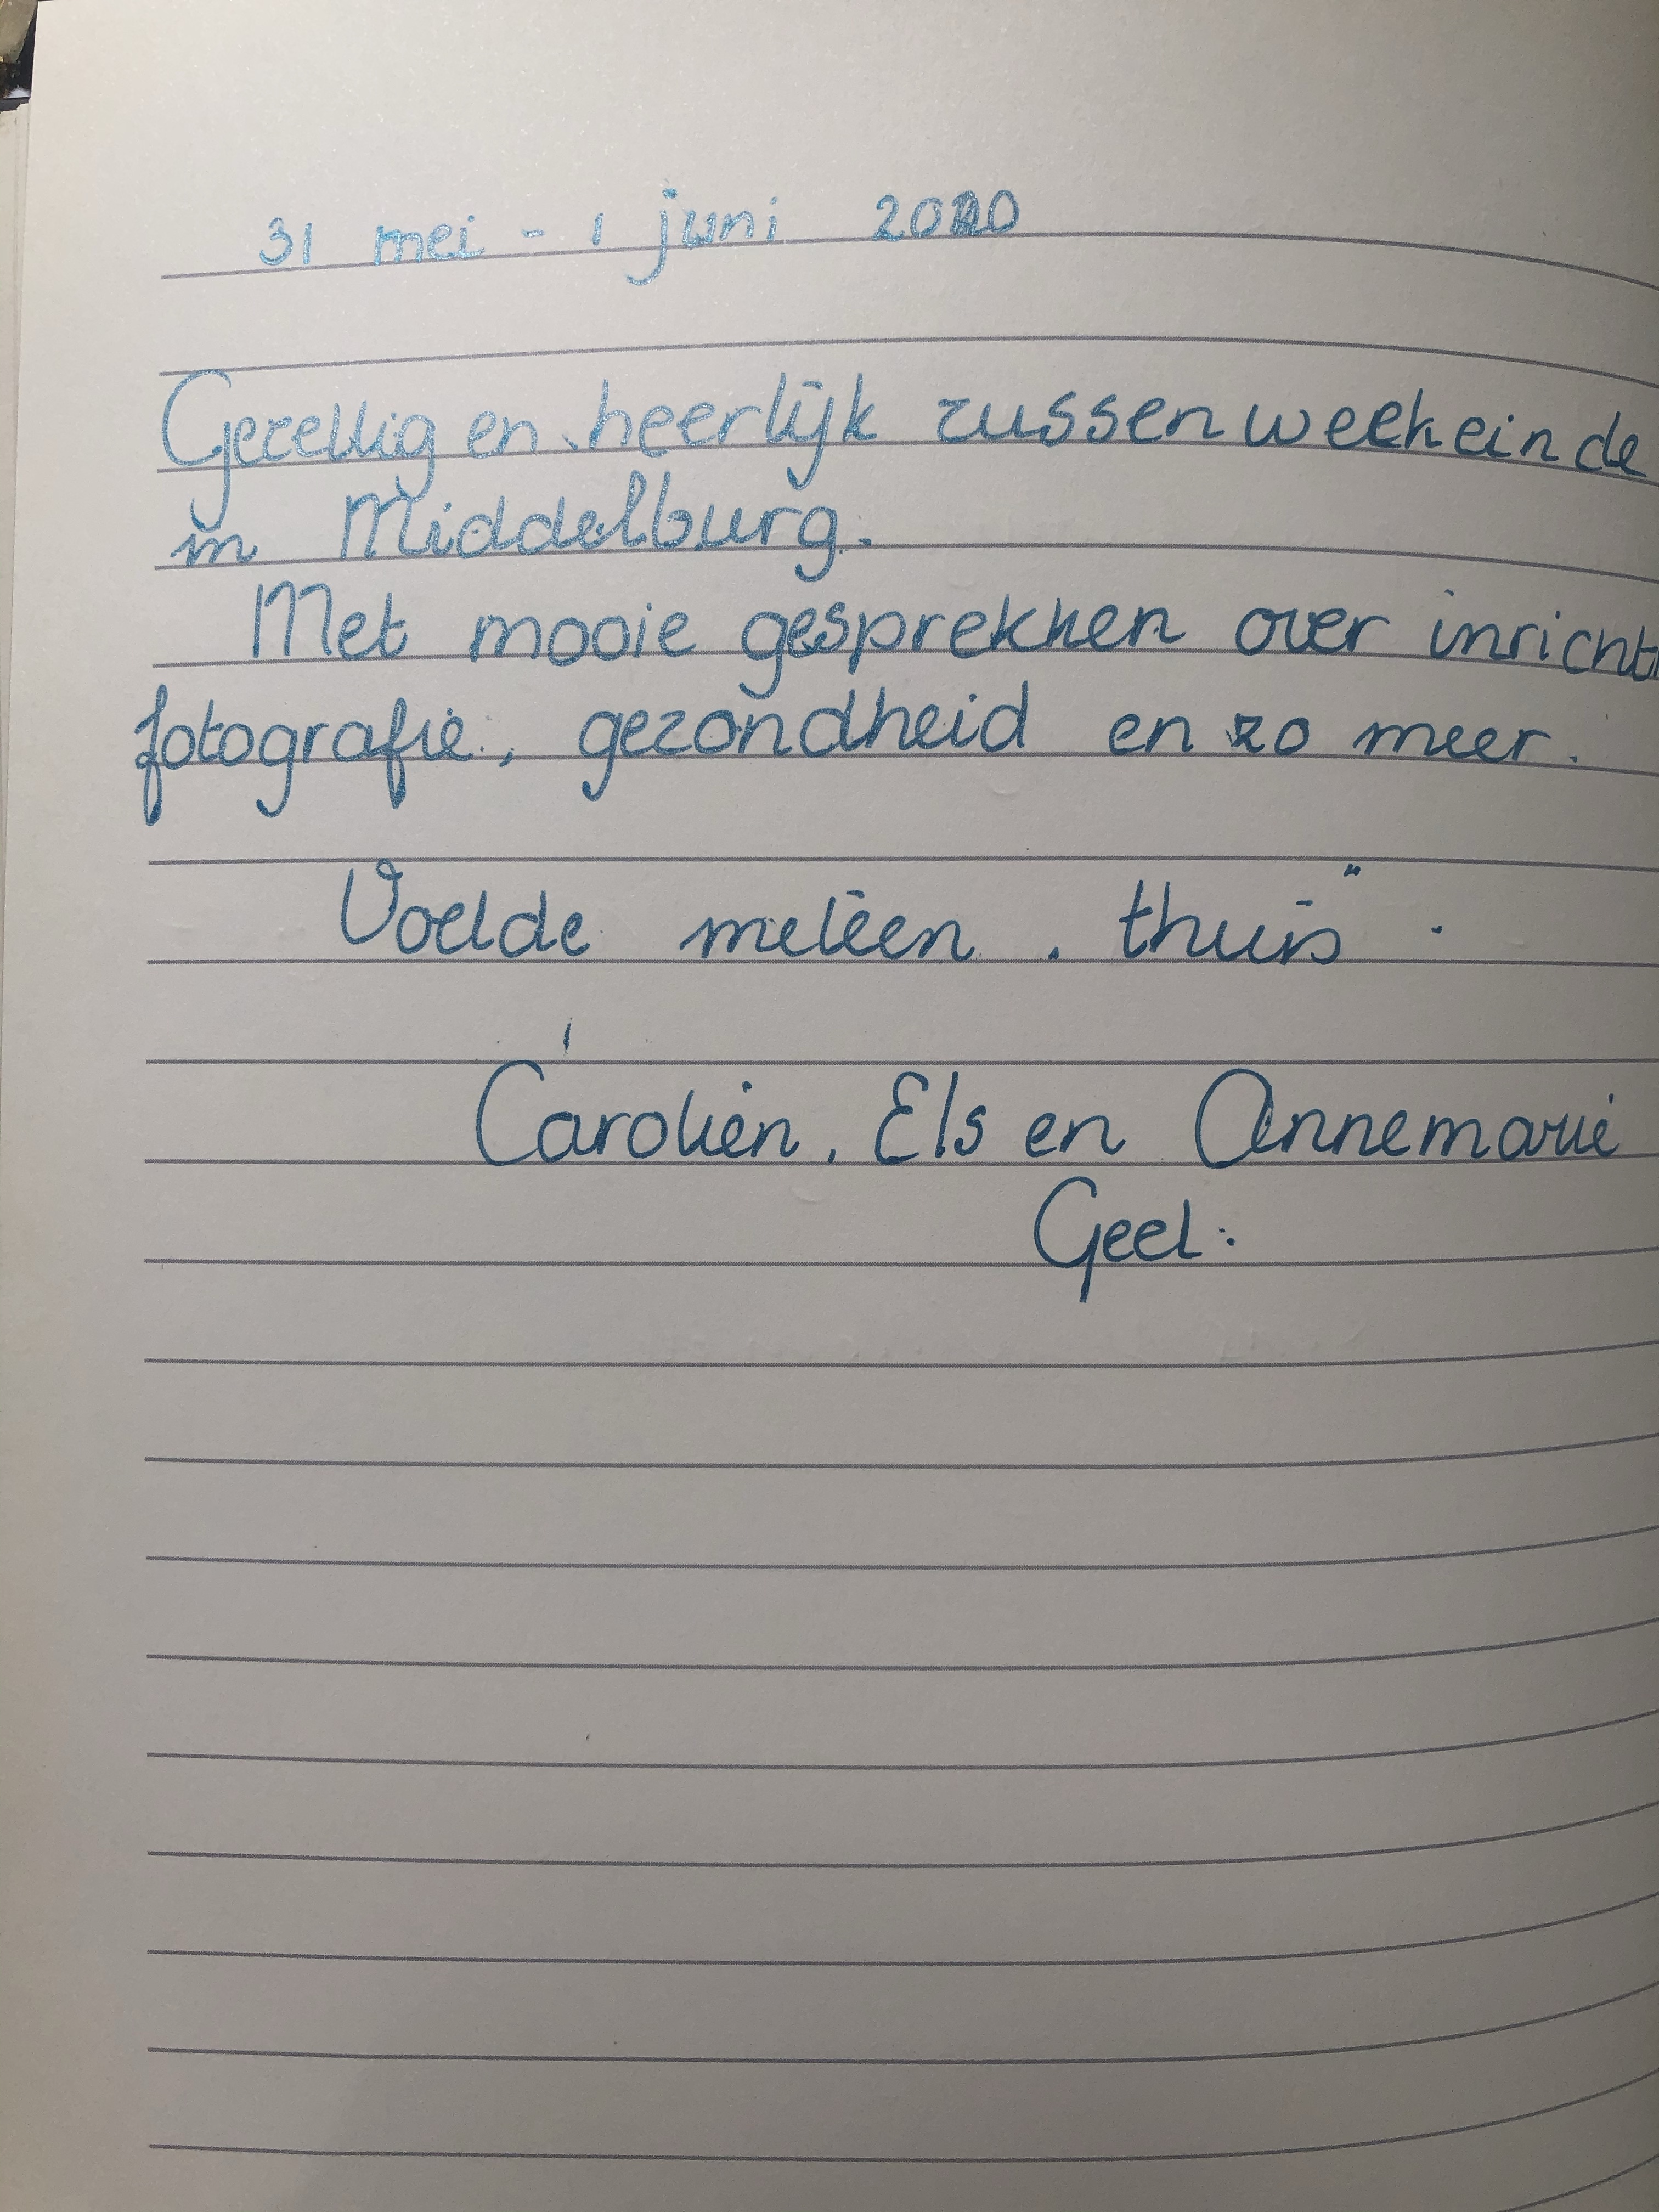 31 mei - 1 juni 2020
Gezellig en heerlijk zussenweekeinde
in Middelburg.
Met mooie gesprekken over inricht
fotografie, gezondheid en zo meer.
Voelde metéén „thuis”.
Carolien, Els en Annemarie
Geel.